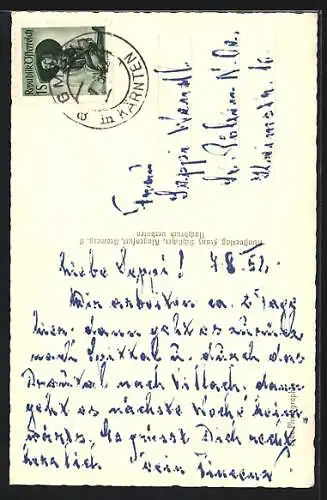 Republik Österreich
1S
in KÄRNTEN
Frau
Seppi Wandl
St. Pölten N.Ö.
Kunstverlag Franz Schilcher, Klagenfurt
Nachdruck verboten
Liebe Seppi! 7.8.52.
Wir arbeiten ca. 2 Tage
hier, dann geht es zurück
nach Spittal u. durch das
Drautal nach Villach, dann
geht es nächste Woche heim-
wärts. Es grüsst Dich recht
herzlich Dein Vinzenz